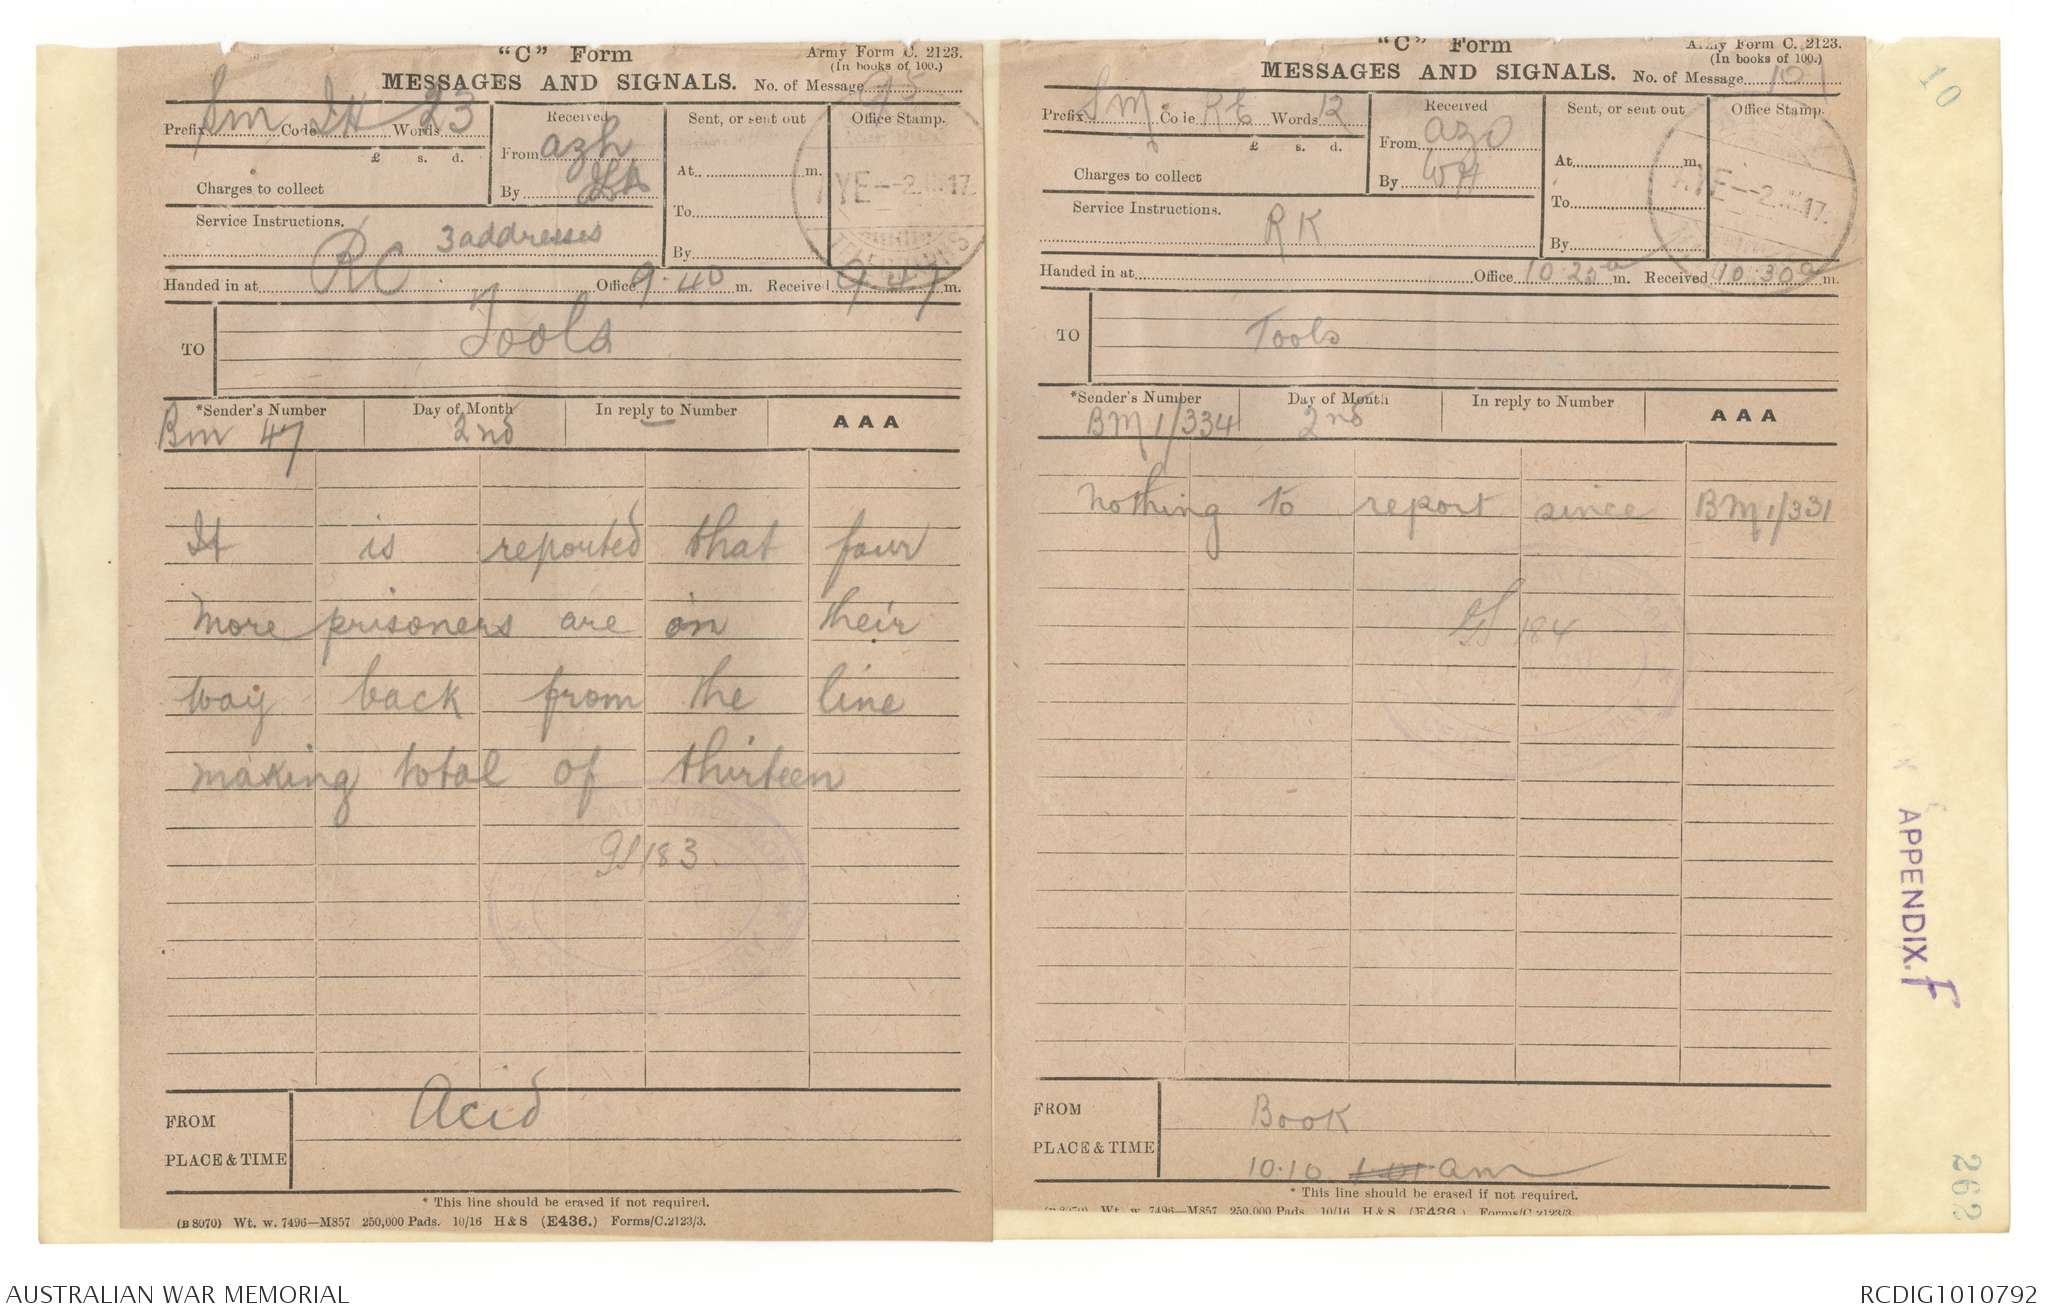 "C" Form
Army Form C. 2123.
(In books of 100.)
MESSAGES AND SIGNALS. No. of Message 95
Prefix Sm Code IH Words 23
Received
From azh
By
Sent, or sent out
At m.
To
By
Office Stamp.
YE -2. 17
£ s. d.
Charges to collect
Service Instructions.
RC 3 addresses
Handed in at Office 9.40 m. Received 9.47 m.
TO Tools
*Sender's Number Day of Month In reply to Number AAA
Bm 47 2nd —
It is reported that four
more prisoners are on their
way back from the line
making total of thirteen
GS 183
FROM Acid
PLACE & TIME
* This line should be erased if not required.
(B 8070) Wt. w. 7496—M857 250,000 Pads. 10/16 H & S (E436.) Forms/C.2123/3.
"C" Form
Army Form C. 2123.
(In books of 100.)
MESSAGES AND SIGNALS. No. of Message 101
Prefix Sm Code Words 12
Received
From azo
By WH
Sent, or sent out
At m.
To
By
Office Stamp.
YE -2. 17.
£ s. d.
Charges to collect
Service Instructions.
RK
Handed in at Office 10.20a m. Received 10.30a m.
TO Tools
*Sender's Number Day of Month In reply to Number AAA
BM 1/334 2nd
nothing to report since BM 1/331
GS 184
FROM Book
PLACE & TIME 10.10 am
* This line should be erased if not required.
(B 8070) Wt. w. 7496—M857 250,000 Pads. 10/16 H & S (E436.) Forms/C.2123/3.
10
APPENDIX. F
262
AUSTRALIAN WAR MEMORIAL
RCDIG1010792